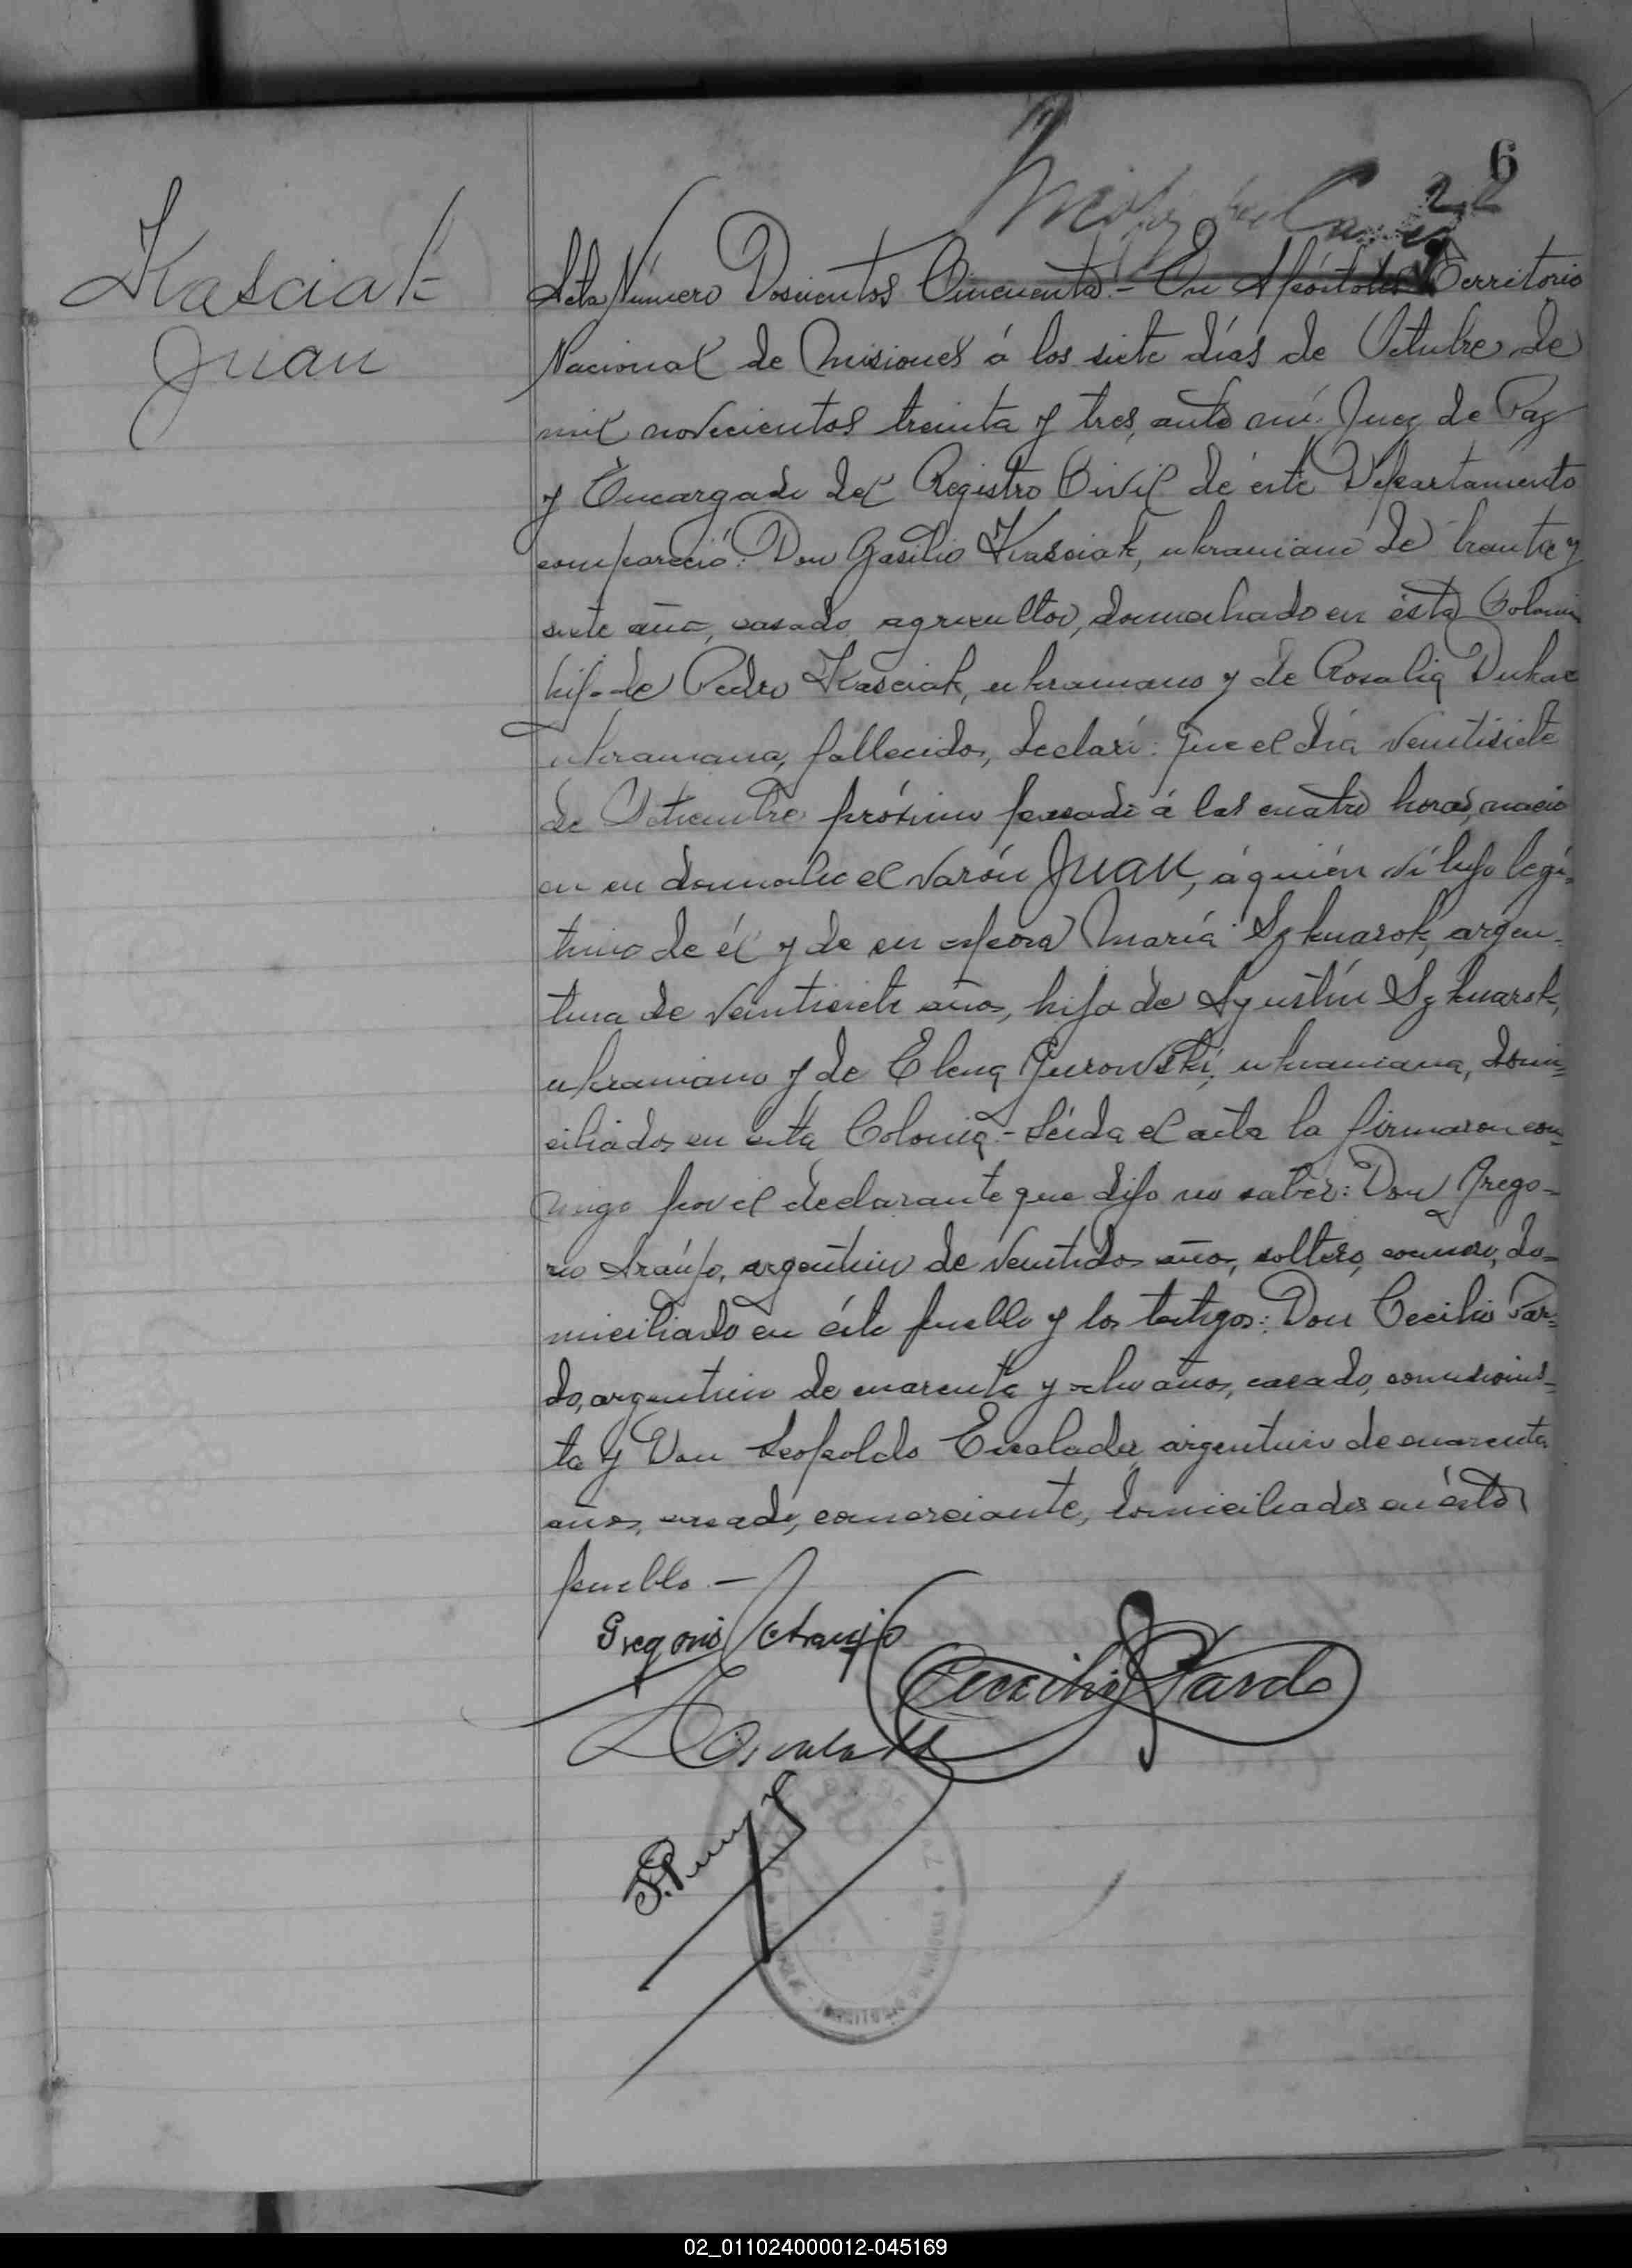 6
22
Kasciak
Juan
Acta Número Doscientos Cincuenta.- En Apóstoles Territorio
Nacional de Misiones á los siete días de Octubre de
mil novecientos treinta y tres, ante mí: Juez de Paz
y Encargado del Registro Civil de éste Departamento
compareció: Don Basilio Kasciak, ukraniano de treinta y
siete año, casado, agricultor, domiciliado en ésta Colonia
hijo de Pedro Kasciak, ukraniano y de Rosalia
ukraniana, fallecidos, declaró: Que el día veintisiete
de Setiembre próximo pasado á las cuatro horas, nació
en su domicilio el varón JUAN, á quién ví hijo legí-
timo de él y de su esposa María Szkuarok, argen-
tina de veintisiete años, hija de Agustín Szkuarok,
ukraniano y de Elena Jurowski, ukraniana, domi-
ciliados en esta Colonia.- Leída el acta la firmaron con-
migo por el declarante que dijo no saber: Don Grego-
rio Araújo, argentino de veintidos años, soltero, do-
miciliado en éste pueblo y los testigos: Don Cecilio Par-
do, argentino de cuarenta y ocho años, casado, comisionis-
ta y Don Leopoldo Escalada, argentino de cuarenta
años, casado, comerciante, domiciliados en ésto
pueblo.-
Gregorio Araujo
Cecilio Pardo
L Escalada